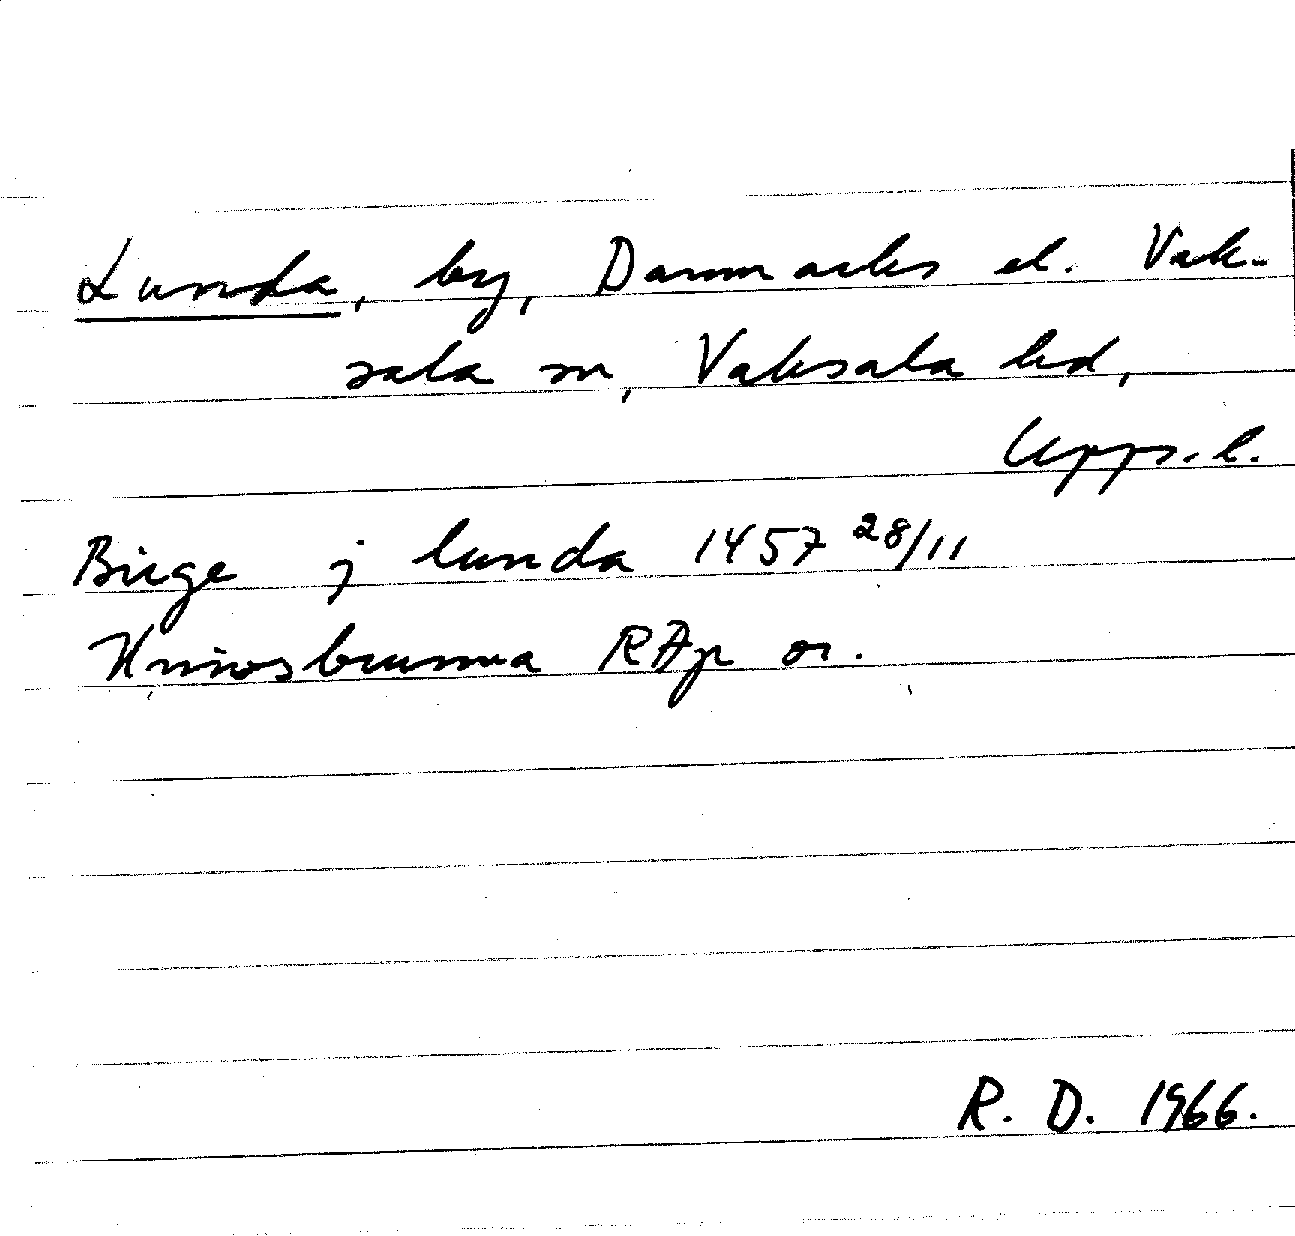 Lunda, by, Danmarks el. Vak-
sala sn, Vaksala hd,
Upps. l.
Birge j lunda 1457 28/11
Hnivsbrunna RAp or.
R. D. 1966.